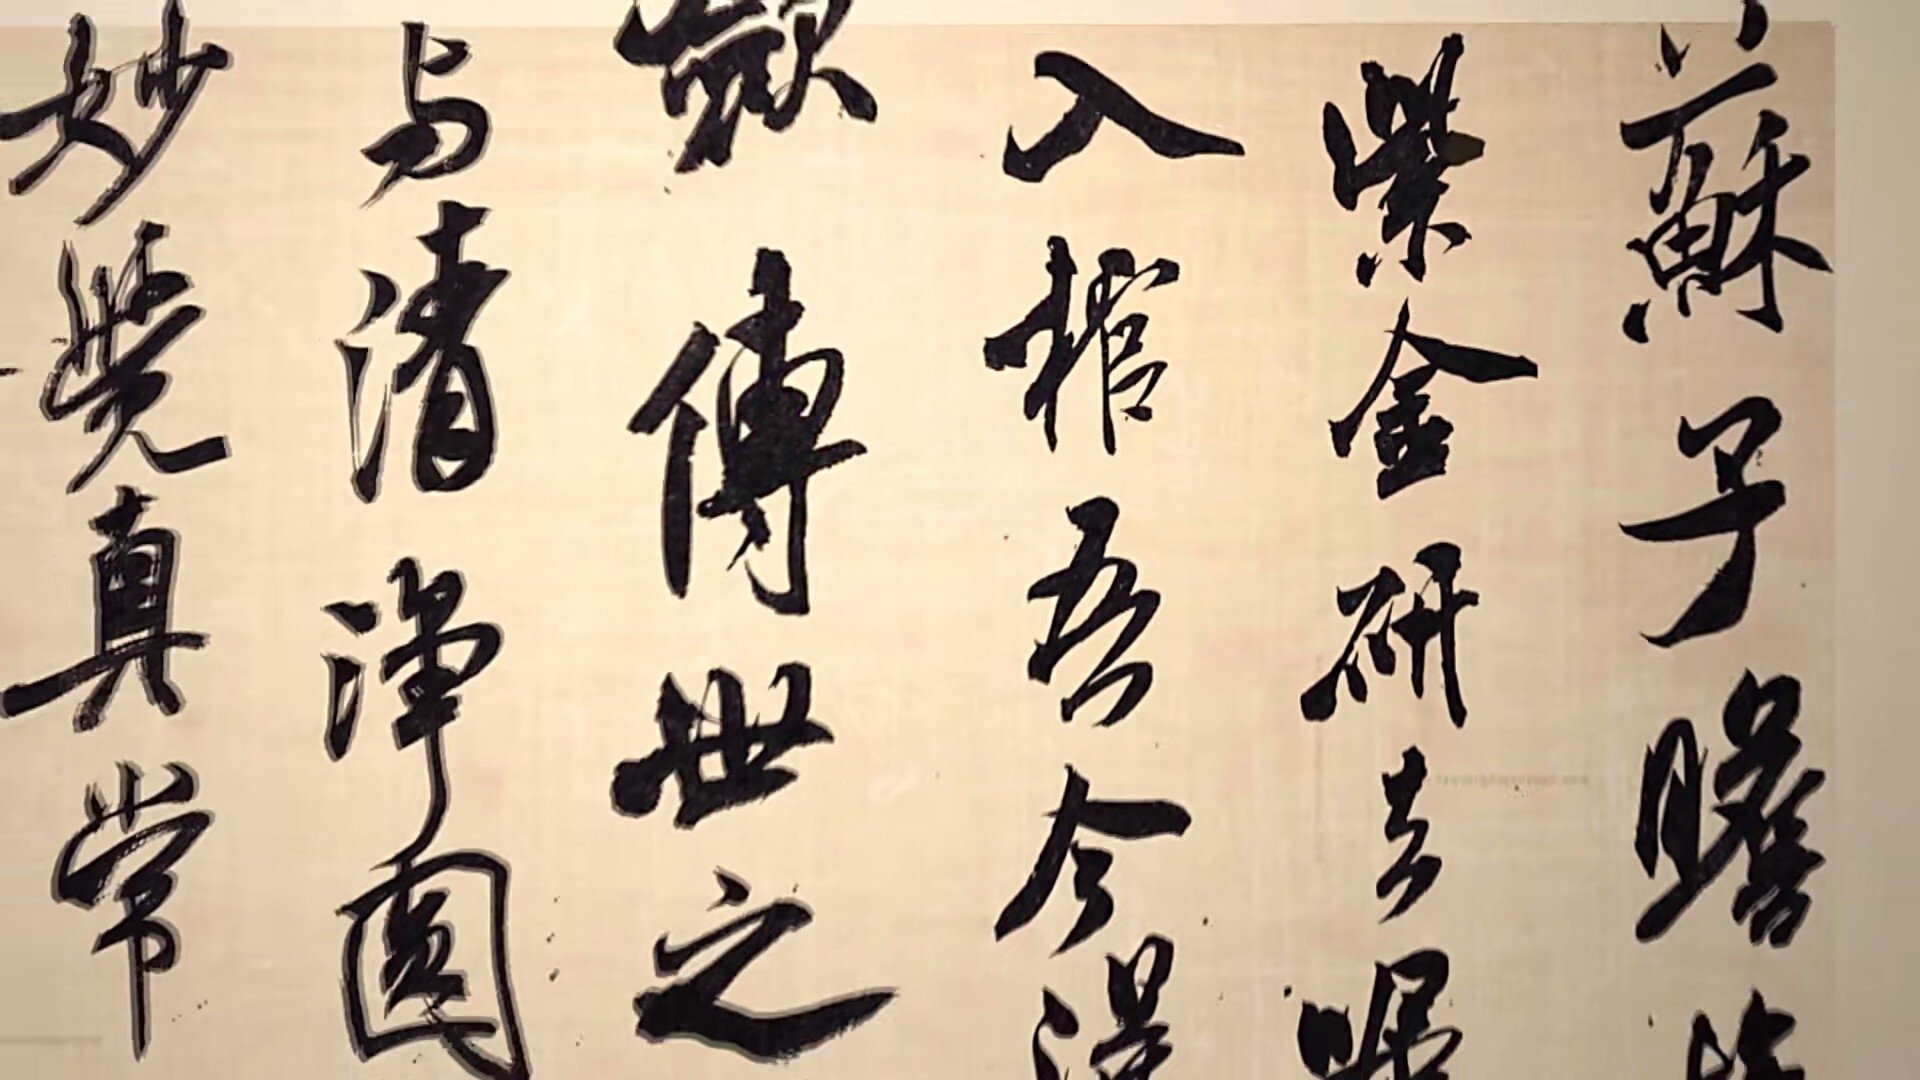 蘇子瞻
紫金研去嘱
入棺吾今得
斂傳世之
与清淨圆
妙覺真常